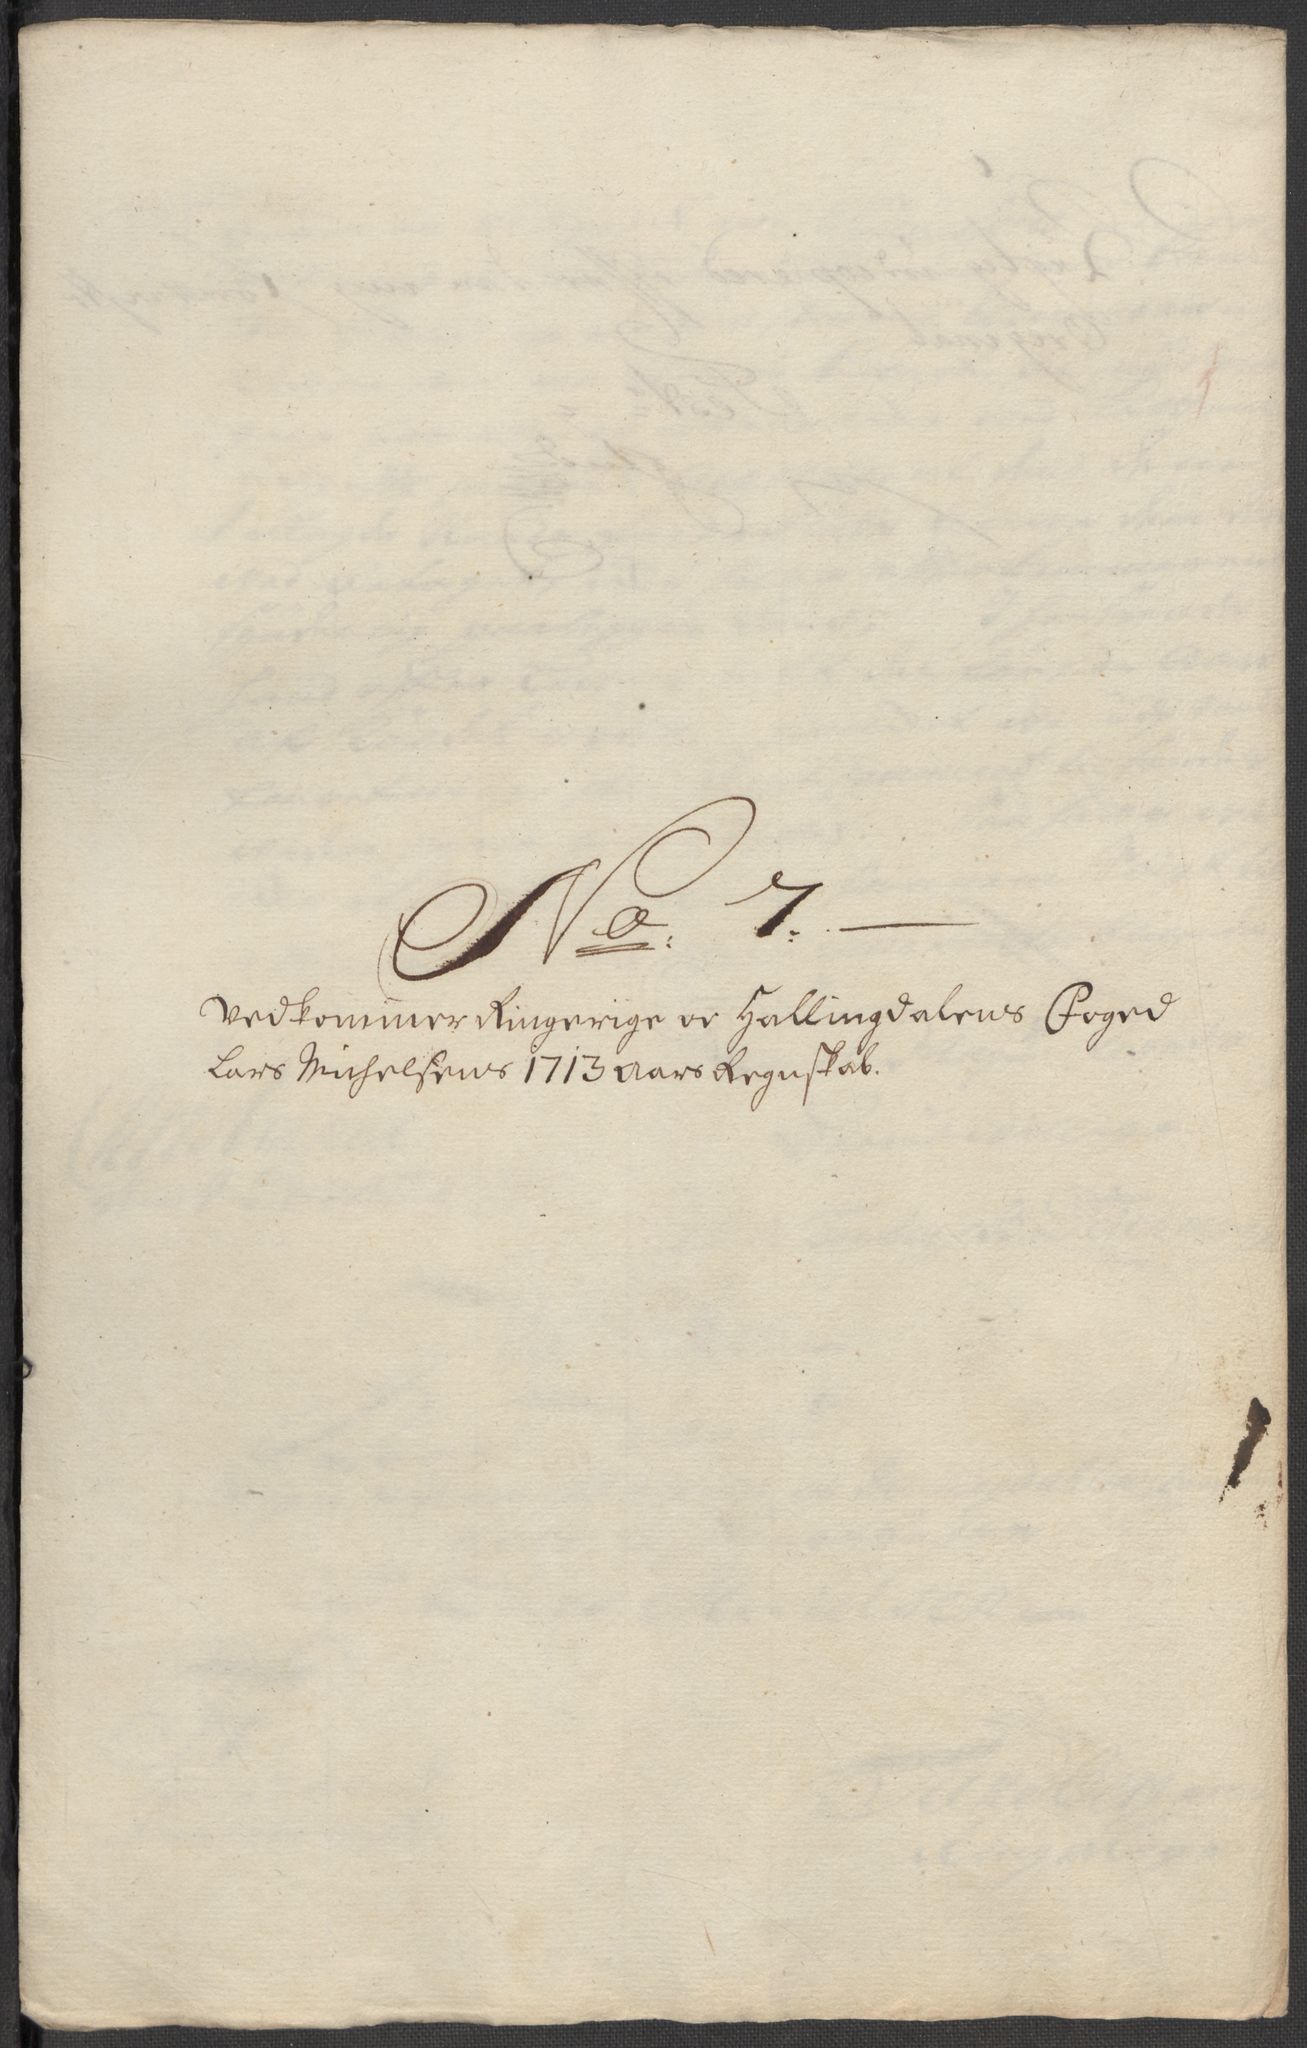 No. 7.
Vedkommer Ringerige oc Hallingdalens Foged
Lars Michelsens 1713 aars Regnskab.